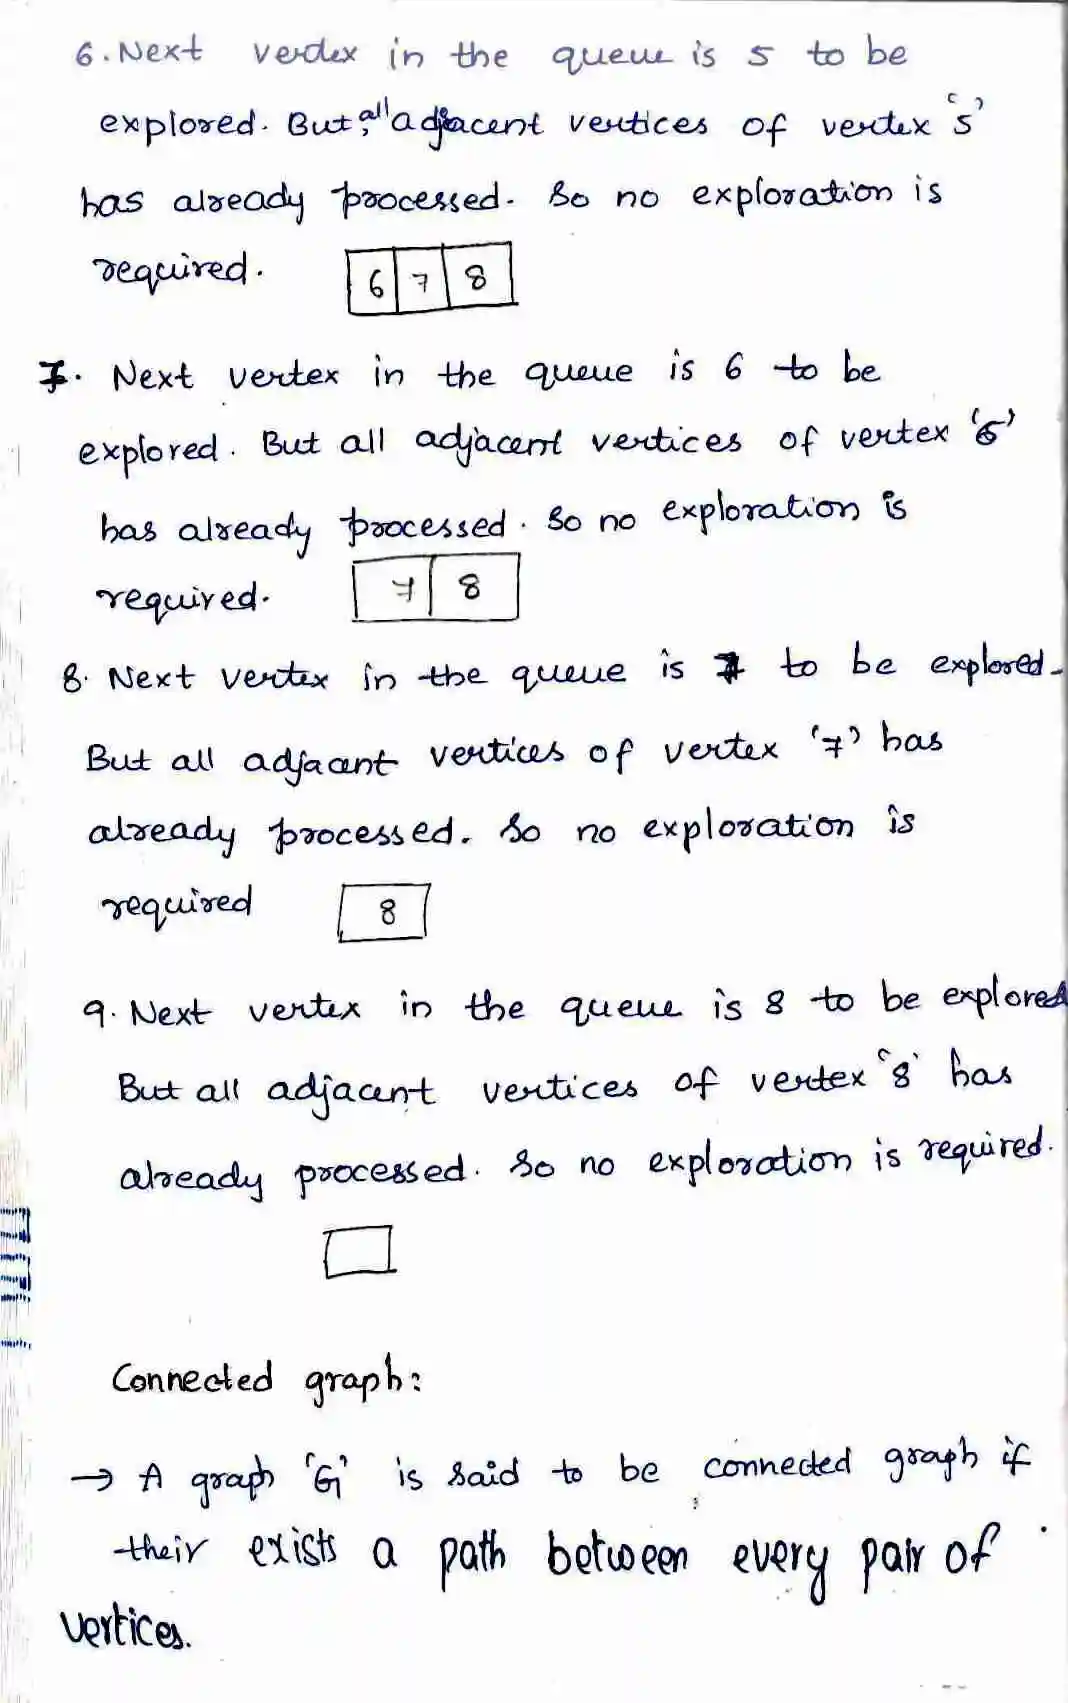 6. Next vertex in the queue is 5 to be
explored. But, all adjacent vertices of vertex '5'
has already processed. So no exploration is
required. 6 7 8
7. Next vertex in the queue is 6 to be
explored. But all adjacent vertices of vertex '6'
has already processed. So no exploration is
required. 7 8
8. Next vertex in the queue is 7 to be explored.
But all adjacent vertices of vertex '7' has
already processed. So no exploration is
required 8
9. Next vertex in the queue is 8 to be explored
But all adjacent vertices of vertex '8' has
already processed. So no exploration is required.
Connected graph:
→ A graph 'G' is said to be connected graph if
their exists a path between every pair of
vertices.